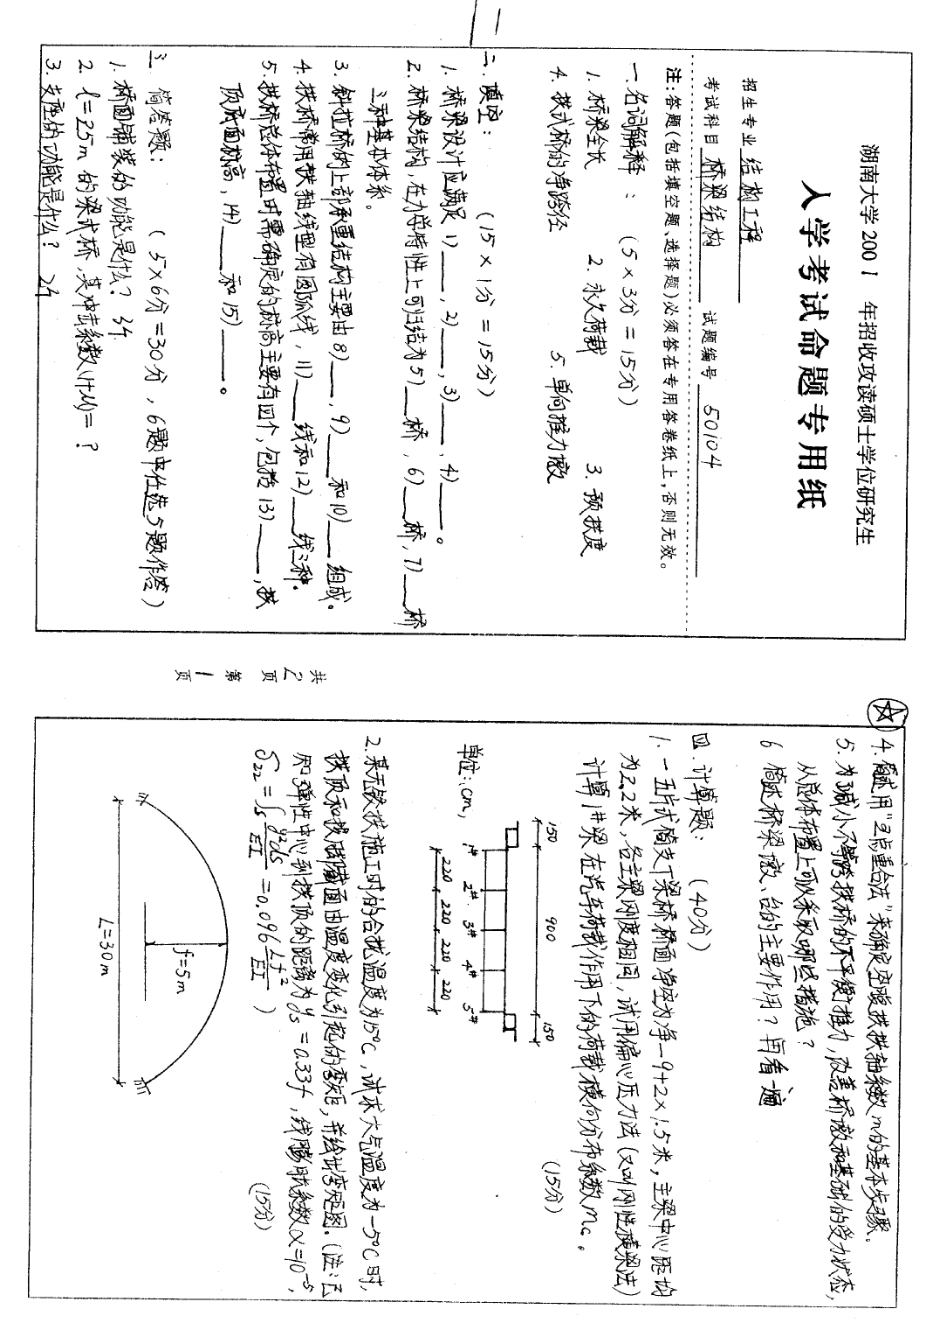 湖南大学2001 年招收攻读硕士学位研究生
入学考试命题专用纸
招生专业 结构工程
考试科目 桥梁结构 试题编号 50104
注:答题(包括填空题、选择题)必须答在专用答卷纸上,否则无效。
一.名词解释: (5×3分=15分)
1.桥梁全长 2.永久荷载 3.预拱度
4.拱式桥的净跨径 5.单向推力墩
二.填空: (15×1分=15分)
1.桥梁设计应满足1)___,2)___,3)___,4)___。
2.桥梁结构,在力学特性上可归结为5)___桥,6)___桥,7)___桥
三种基本体系。
3.斜拉桥的上部承重结构主要由8)___,9)___和10)___组成。
4.拱桥常用拱轴线型有圆弧线,11)___线和12)___线三种。
5.拱桥总体布置时需确定的标高主要有四个,包括13)___,拱
顶底面标高,14)___和15)___。
三.简答题: (5×6分=30分,6题中任选5题作答)
1.桥面铺装的功能是什么? 34
2.l=25m的梁式桥,其冲击系数(1+μ)=?
3.支座的功能是什么? 24
共2页 第1页
4.简述用"五点重合法"来确定空腹拱拱轴系数m的基本步骤。
5.为了减小不等跨拱桥的不平衡推力,改善桥墩和基础的受力状态,
从总体布置上可以采取哪些措施?
6 简述桥梁墩、台的主要作用? 再看一遍
四.计算题: (40分)
1.一五片式简支T梁桥桥面净空为净-9+2×1.5米,主梁中心距均
为2.2米,各主梁刚度相同,试用偏心压力法(又叫刚性横梁法)
计算1#梁在汽车荷载作用下的荷载横向分布系数mc。
(15分)
150 900 150
1# 2# 3# 4# 5#
220 220 220 220
单位:cm,
2.某无铰拱施工时的合拢温度为15°C,试求大气温度为-5°C时,
拱顶和拱脚截面由温度变化引起的弯矩,并绘出弯矩图。(注:已
知弹性中心到拱顶的距离为ys=0.33f,线膨胀系数α=10⁻⁵,
δ22=∫s y²ds/EI=0.096 Lf²/EI) (15分)
f=5m
L=30m